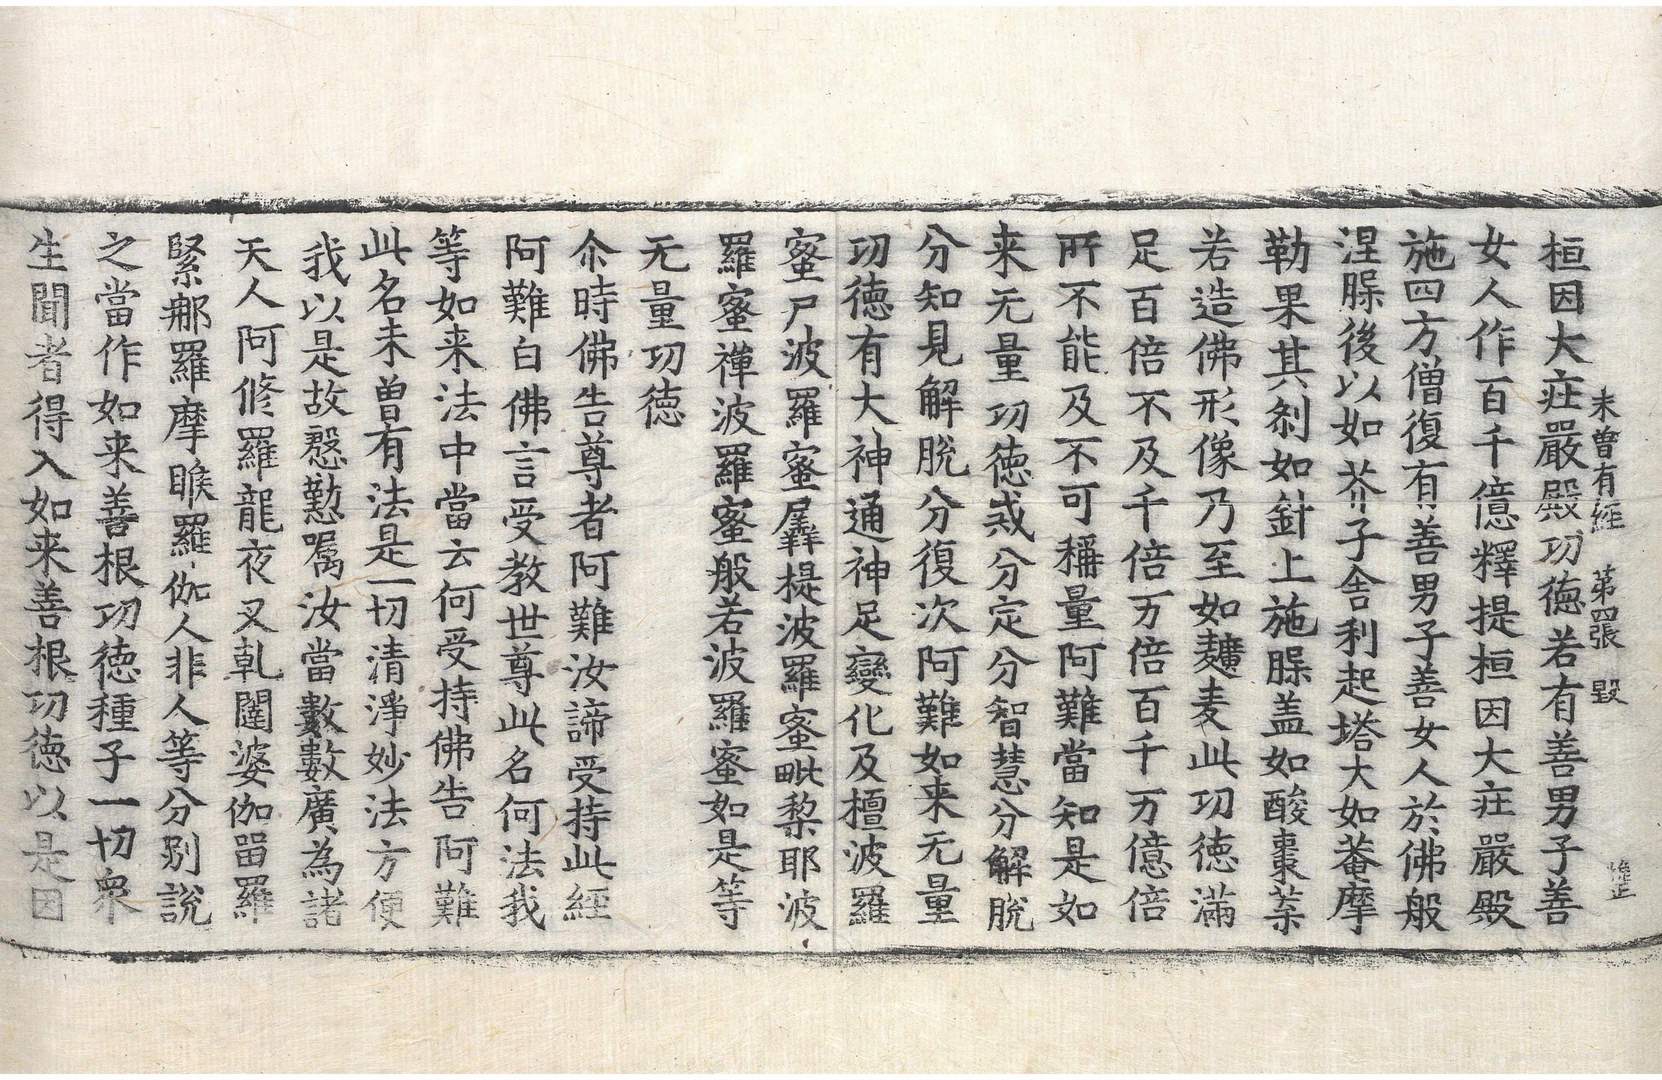 未曾有經 第四張 毀
桓因大疘嚴殿功德若有善男子善
女人作百千億釋提桓因大疘嚴殿
施四方僧復有善男子善女人於佛般
涅槃後以如芥子舍利起塔大如菴摩
勒果其刹如針上施槃盖如酸棗葉
若造佛形像乃至如麵麦此功徳滿
足百倍不及千倍万倍百千万億倍
所不能及不可稱量阿難當知是如
来无量功徳戒分定分智慧分解脫
分知見解脫分復次阿難如来无量
功徳有大神通神足變化及檀波羅
蜜尸波羅蜜羼提波羅蜜毗梨耶波
羅蜜禪波羅蜜般若波羅蜜如是等
无量功徳
尒時佛告尊者阿難汝諦受持此經
阿難白佛言受教世尊此名何法我
等如来法中當云何受持佛告阿難
此名未曽有法是一切清淨妙法方便
我以是故慇懃嘱汝當數數廣為諸
天人阿修羅龍夜叉乹闥婆伽留羅
緊那羅摩睺羅伽人非人等分別說
之當作如来善根功徳種子一切衆
生聞者得入如来善根功徳以是因